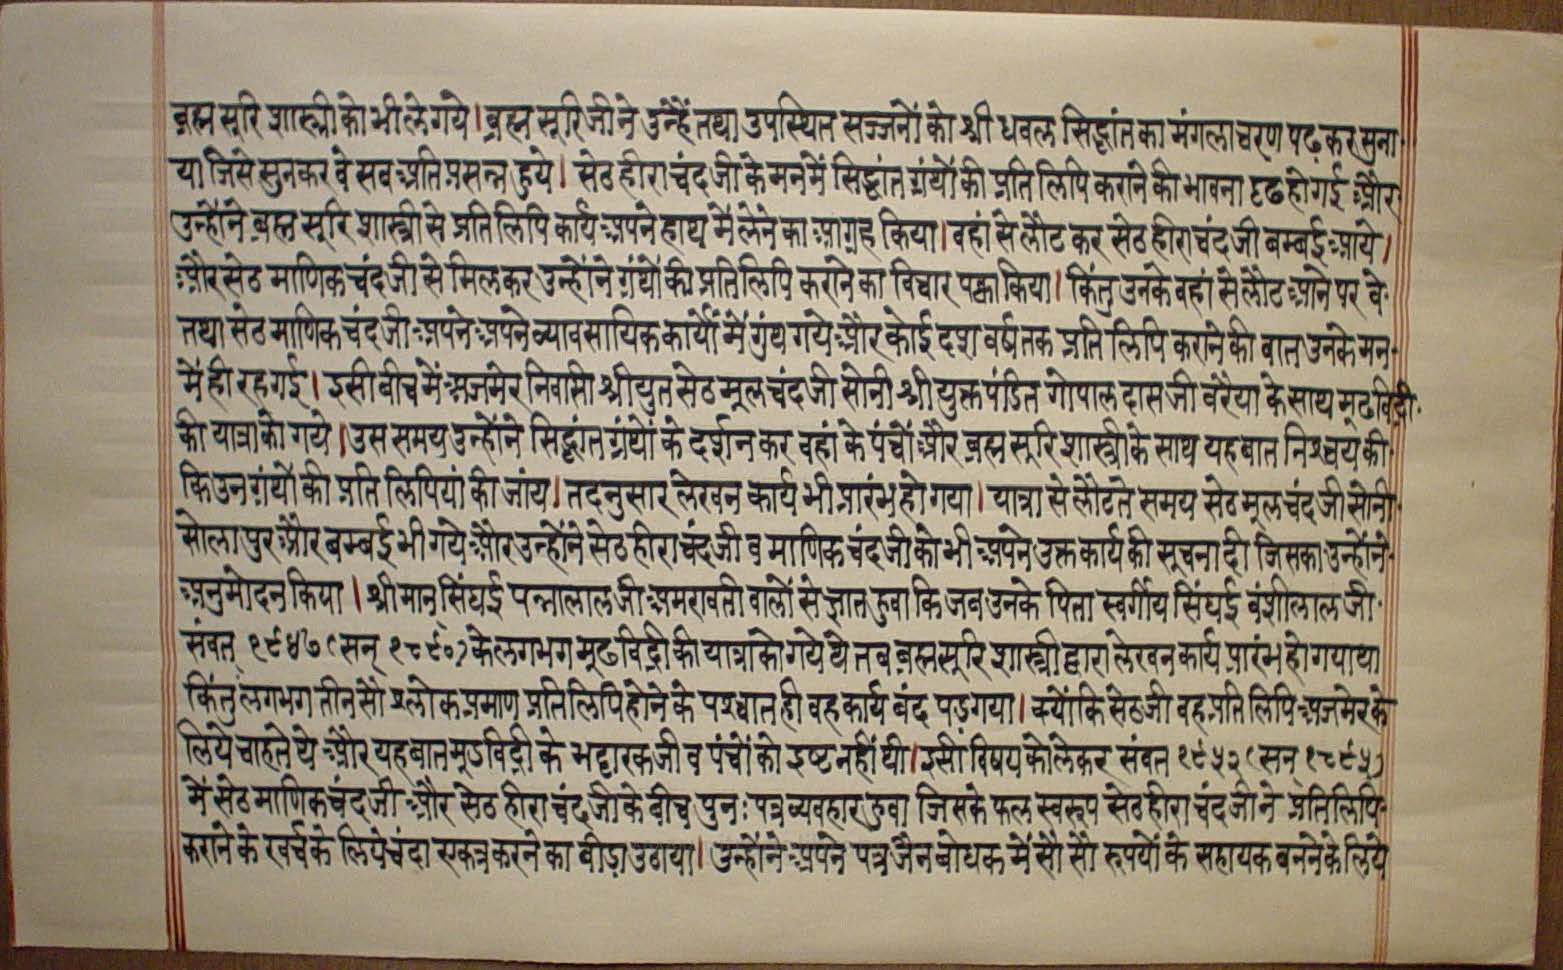 ब्रह्म सूरि शास्त्री को भी ले गये। ब्रह्म सूरिजी ने उन्हें तथा उपस्थित सज्जनों को श्री धवल सिद्धांत का मंगलाचरण पढ़ कर सुना-
या जिसे सुनकर वे सब अति प्रसन्न हुये। सेठ हीराचंदजी के मन में सिद्धांत ग्रंथों की प्रतिलिपि कराने की भावना दृढ हो गई और
उन्होंने ब्रह्म सूरि शास्त्री से प्रतिलिपि कार्य अपने हाथ में लेने का आग्रह किया। वहां से लौट कर सेठ हीराचंदजी बम्बई आये।
और सेठ माणिकचंदजी से मिलकर उन्होंने ग्रंथों की प्रतिलिपि कराने का विचार पक्का किया। किंतु उनके वहां से लौट आने पर वे-
तथा सेठ माणिकचंदजी अपने अपने व्यावसायिक कार्यों में गुंथ गये और कोई दश वर्ष तक प्रतिलिपि कराने की बात उनके मन-
में ही रह गई। इसी बीच में अजमेर निवासी श्रीयुत सेठ मूलचंदजी सोनी श्रीयुक्त पंडित गोपालदासजी वरैया के साथ मूढविद्री-
की यात्रा को गये। उस समय उन्होंने सिद्धांत ग्रंथों के दर्शन कर वहां के पंचों और ब्रह्म सूरि शास्त्री के साथ यह बात निश्चय की
कि उन ग्रंथों की प्रतिलिपियां की जांय। तदनुसार लेखन कार्य भी प्रारंभ हो गया। यात्रा से लौटते समय सेठ मूलचंदजी सोनी-
सोलापुर और बम्बई भी गये और उन्होंने सेठ हीराचंदजी व माणिकचंदजी को भी अपने उक्त कार्य की सूचना दी जिसका उन्होंने-
अनुमोदन किया। श्रीमान् सिंघई पन्नालालजी अमरावती वालों से ज्ञात हुवा कि जब उनके पिता स्वर्गीय सिंघई बंशीलालजी-
संवत् १९४७ (सन् १८९०) के लगभग मूढविद्री की यात्रा को गये थे तब ब्रह्मसूरि शास्त्री द्वारा लेखन कार्य प्रारंभ हो गया था
किंतु लगभग तीन सौ श्लोक प्रमाण प्रतिलिपि होने के पश्चात ही वह कार्य बंद पड़ गया। क्योंकि सेठजी वह प्रतिलिपि अजमेर के
लिये चाहते थे और यह बात मुडविद्री के भट्टारकजी व पंचों को इष्ट नहीं थी। इसी विषय को लेकर संवत १९५२ (सन् १८९५)
में सेठ माणिकचंदजी और सेठ हीराचंदजी के बीच पुनः पत्रव्यवहार हुवा जिसके फल स्वरूप सेठ हीराचंदजी ने प्रतिलिपि-
कराने के खर्च के लिये चंदा एकत्र करने का बीड़ा उठाया। उन्होंने अपने पत्र जैन बोधक में सौ सौ रुपयों के सहायक बनने के लिये